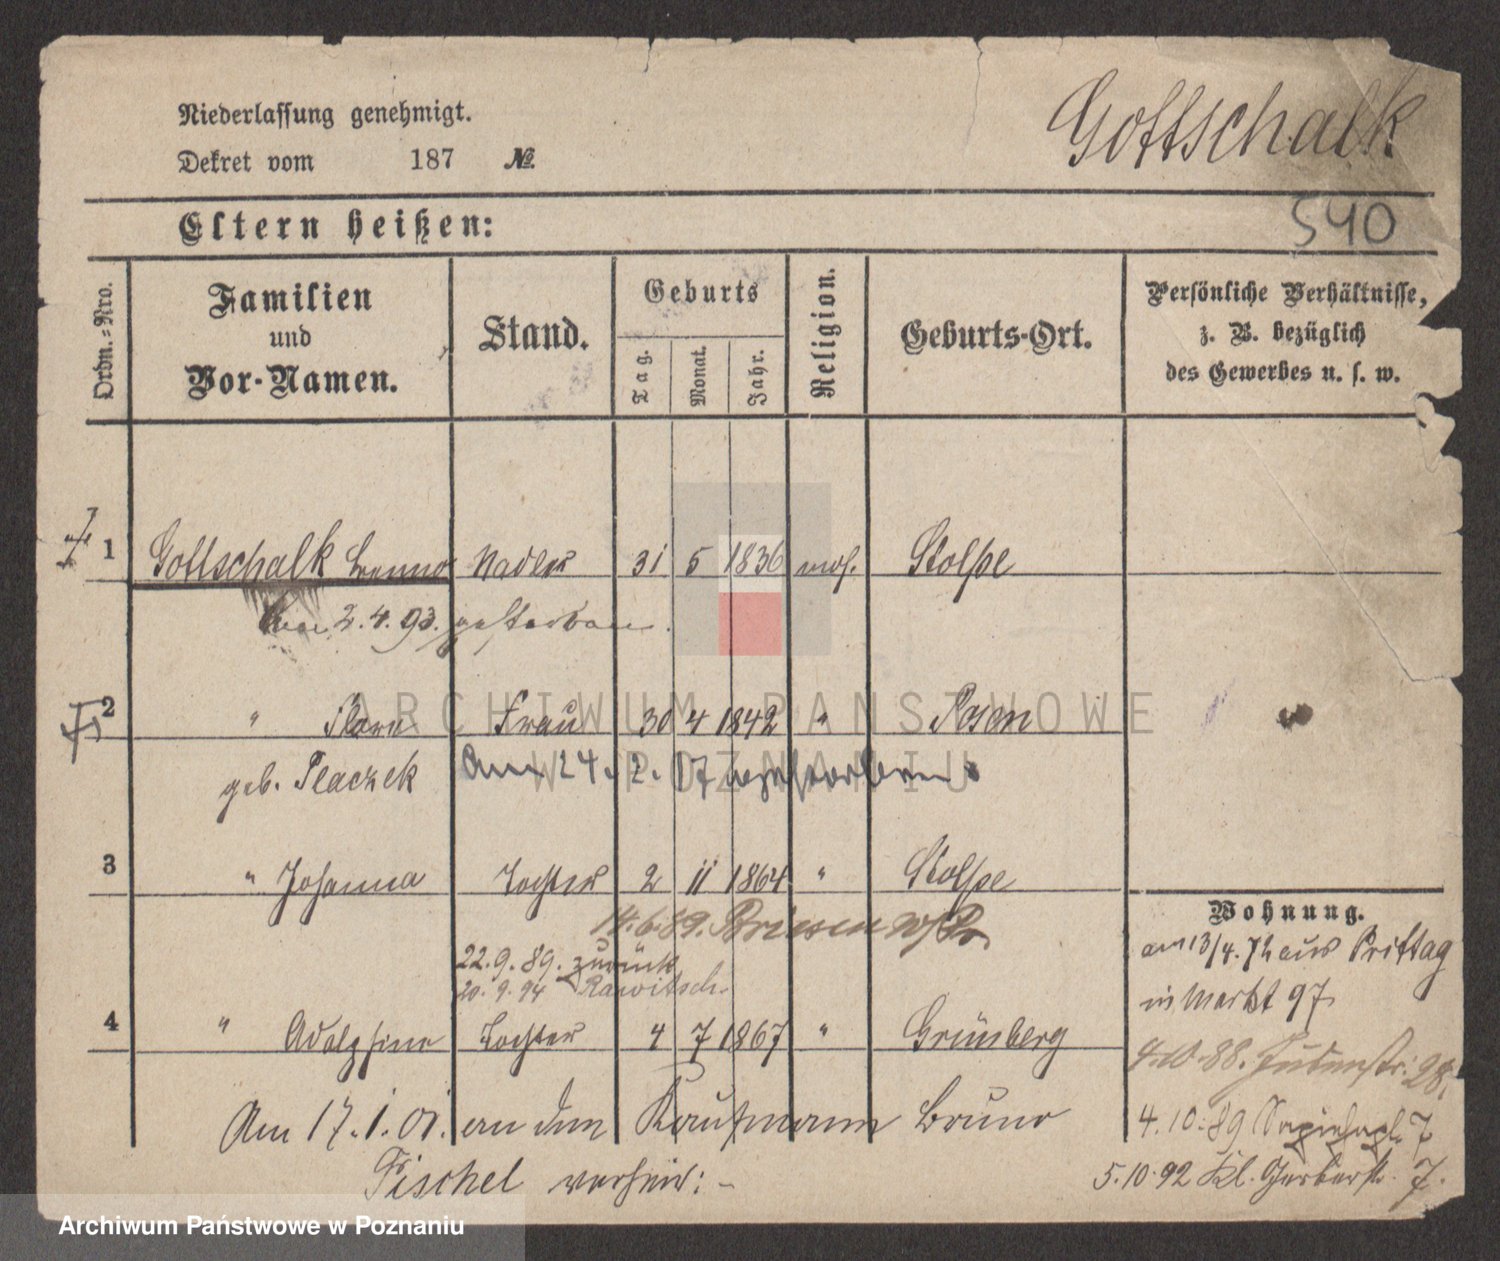 Niederlassung genehmigt.
Gottschalk
Dekret vom 187 №.
540
Eltern heißen:
Ordn.-Nro.
Familien und Vor-Namen.
Stand.
Geburts
Tag.
Monat.
Jahr.
Religion.
Geburts-Ort.
Persönliche Verhältnisse,
z. B. bezüglich
des Gewerbes u. s. w.
1 Gottschalk Benno Nadler 31 5 1836 mos. Stolpe
Am 2.4.93. gestorben.
2 " Flora Frau 30 4 1842 " Posen
geb. Placzek Am 24. 2. 17 gestorben
3 " Johanna Tochter 2 11 1864 " Stolpe
14.6.89. Briesen W/Pr.
22.9.89. zurück
20.9.94 Rawitsch.
4 " Adolphine Tochter 4 7 1867 " Grünberg
Am 17.1.01. an den Kaufmann Bruno
Fischel verheir: -
Wohnung.
am 13/4. 72 aus Prittag
in Markt 97
4.10.88. Judenstr. 28.
4.10.89 Sapiehapl. 7
5.10.92 Kl. Gerberstr. 7.
ARCHIWUM PAŃSTWOWE
W POZNANIU
Archiwum Państwowe w Poznaniu